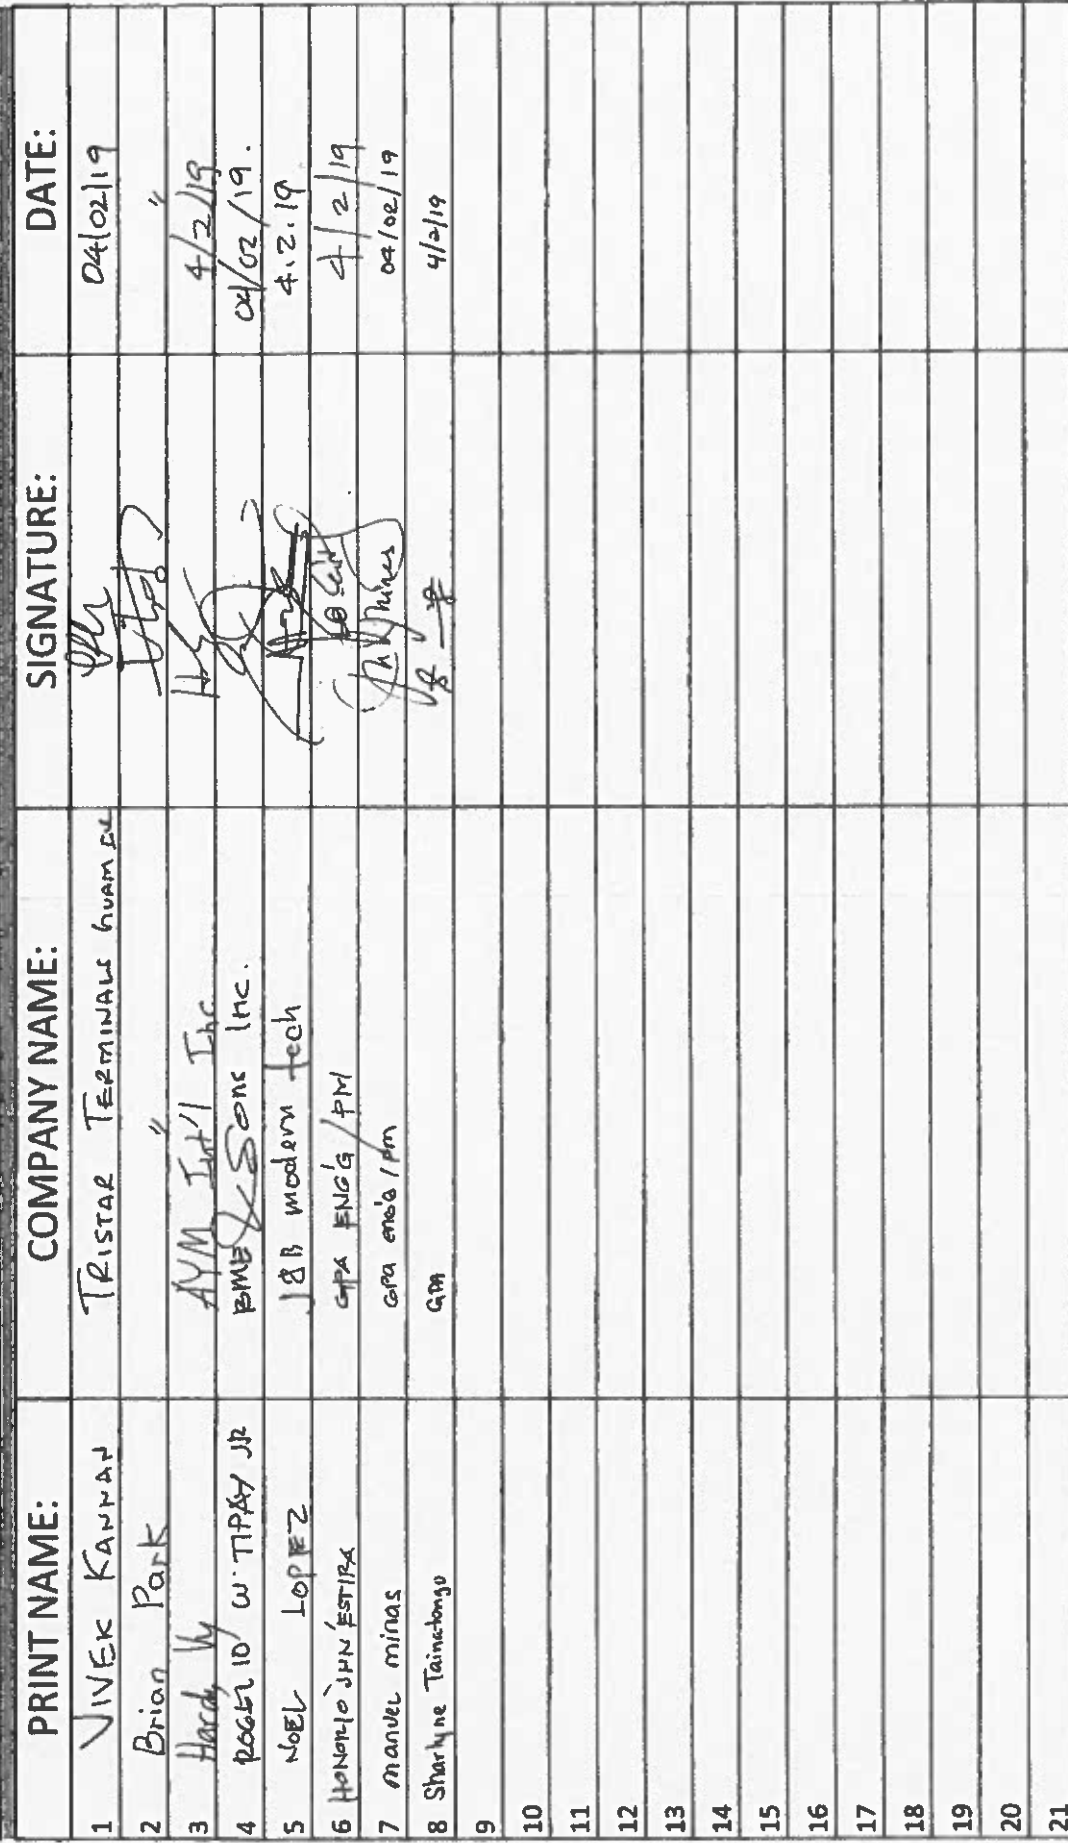 PRINT NAME: COMPANY NAME: SIGNATURE: DATE:
1 VIVEK KANNAN TRISTAR TERMINALS GUAM 04/02/19
2 Brian Park " "
3 Hardy Vy AYM Int'l Inc 4/2/19
4 ROGELIO W. TIPAY JR BME & Sons Inc. 04/02/19.
5 NOEL LOPEZ J&B modern tech 4.2.19
6 HONORIO JHN ESTIRA GPA ENG'G/PM 4/2/19
7 manuel minas GPA eng'g/pm 04/02/19
8 Sharlyne Tainatongo GPA 4/2/19
9
10
11
12
13
14
15
16
17
18
19
20
21